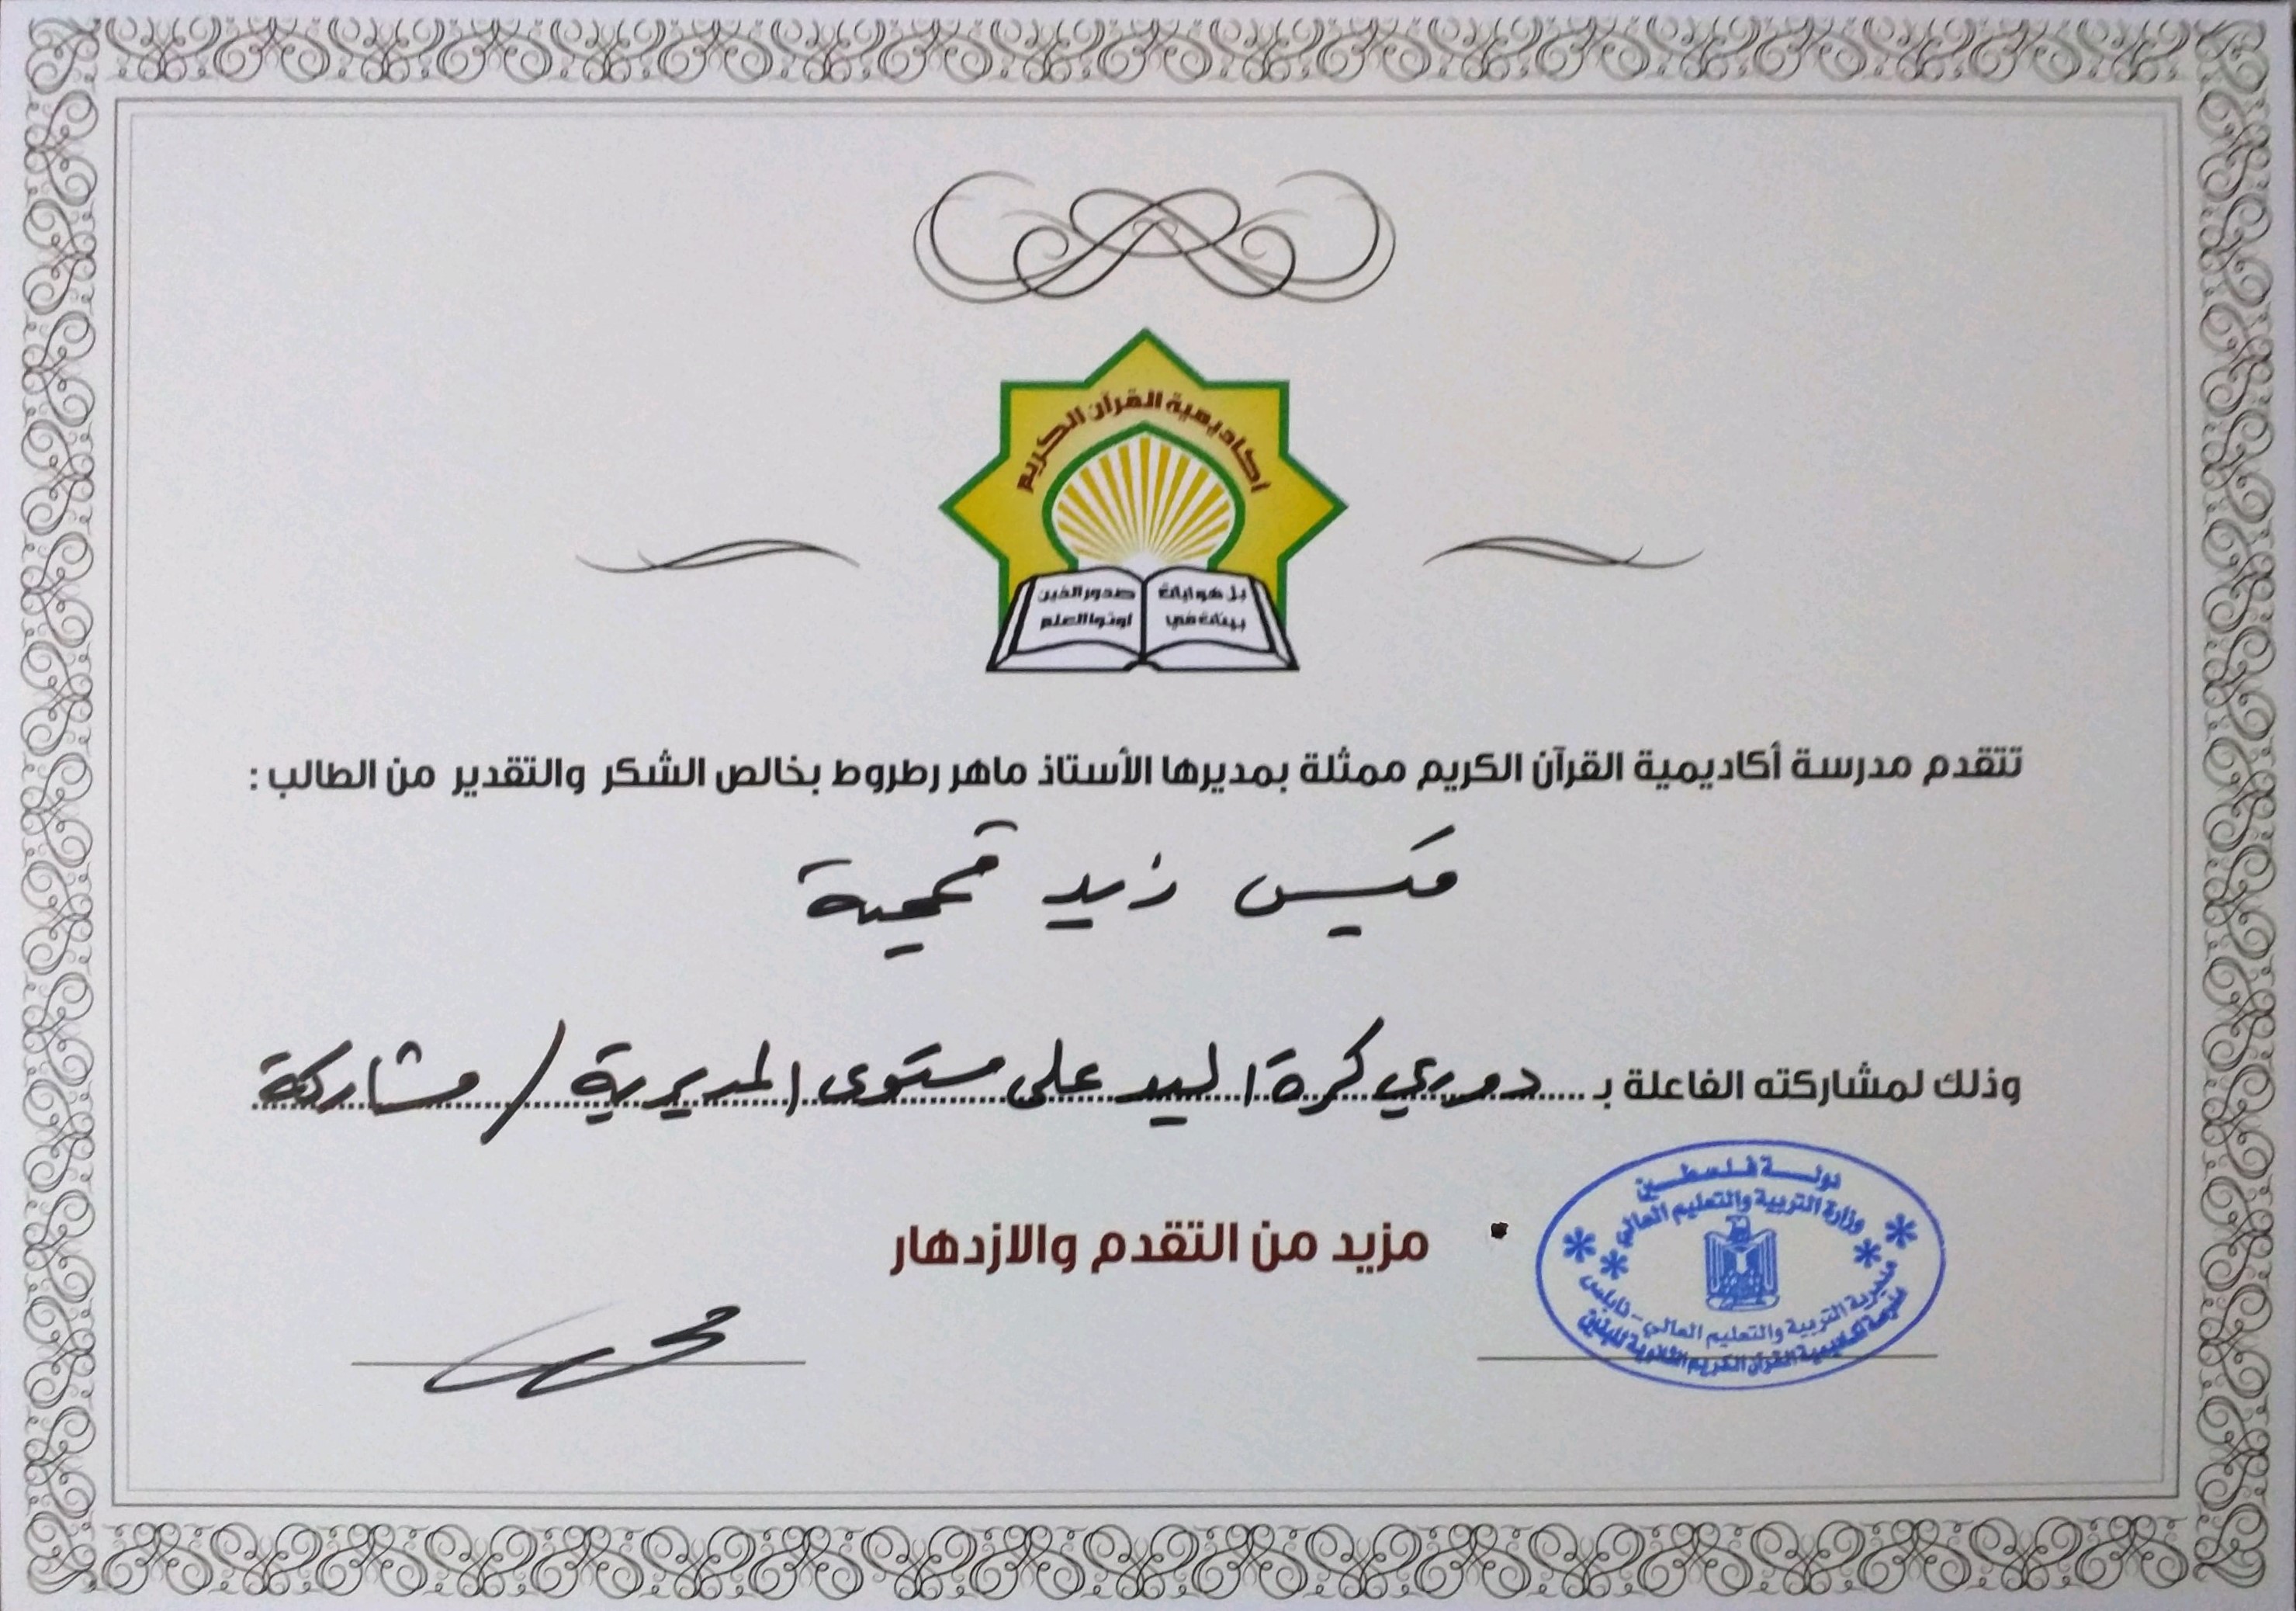 أكاديمية القرآن الكريم
بل هو ايات صدور الذين
بينات في اوتوا العلم
تتقدم مدرسة أكاديمية القرآن الكريم ممثلة بمديرها الأستاذ ماهر رطروط بخالص الشكر والتقدير من الطالب :
قيس زيد قمحية
وذلك لمشاركته الفاعلة بـ دوري كرة اليد على مستوى المديرية / مشاركة
مزيد من التقدم والازدهار
دولة فلسطين
وزارة التربية والتعليم العالي
مديرية التربية والتعليم العالي - نابلس
مدرسة أكاديمية القرآن الكريم الثانوية للبنين